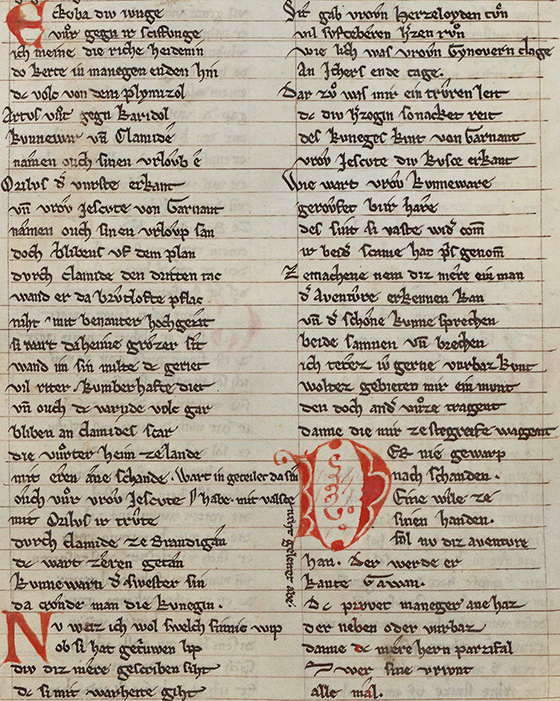 Eckuba div iunge
vuͦr gegn ir sciffunge
ich meine die riche heidenin
do kerte in manegen enden hin
dc volc von dem plymizol
Artus vuͦr gegn karidol
kunnewar vn̄ Clamide
namen ouch sinen vrloub e
Orilus d͛ vurste erkant
vn̄ vroͮ Jescute von Garnant
namen ouch sinen vrloup san
doch bliben si vf dem plan
durch clamide den dritten tac
wand er da bruͦtlofte pflac
niht mit benanter hochgezit
si wart da heime grozer sit
wand im sin milte dc geriet
vil riter kumberhafte diet
vn̄ ouch de varnde volc gar
bliben an clamides scar
die vuͦrter heim ze lande
mit eren ane schande. Wart in geteilet da sin
ouch vuͦr vroͮ Jescute habe. mit valsce
niht geleitet abe.
mit Orilus ir trvte
durch Clamide ze Brandigan
dc wart zeren getan
kunnewarn d͛ swester sin
da cronde man die kunegin.
Nv waz ich wol swelch sinnic wip
ob si hat getruwen lip
div diz mere gescriben siht
dc si mir warheite giht
Mir gab vroͮn herzeloyden troͮn
vil svfteberen h͛zen roͮn
wie lach was vroͮn Gynovern clage
An Ithers ende tage.
Dar zoͮ was mir ein truren leit
dc div h͛zogin so nacket reit
des kuneges kint von Garnant
vroͮ Jescute div kvsce erkant
Wie wart vroͮ kvnneware
geroͮfet bi ir hare
des sint si vaste wid͛ com̄
ir bed͛ scame hat p͛s genom̄
Ze machene nem diz mere ein man
d͛ Aventure erkennen kan
vn̄ d͛ schone kunne sprechen
beide samnen vn̄ brechen
ich tetez iv gerne vurbaz kunt
woltez gebieten mir ein munt
den doch and͛ vuͦze tragent
danne die mir ze stegreife wagent
DEr nie gewarp
nach schanden.
Eine wile ze
sinen handen.
sol nv diz aventure
han. der werde er
kante Gawan.
Dc pruvet maneger ane haz
der neben oder vurbaz
danne dc mere hern parzifal
Swer sine vriunt
alle mal.